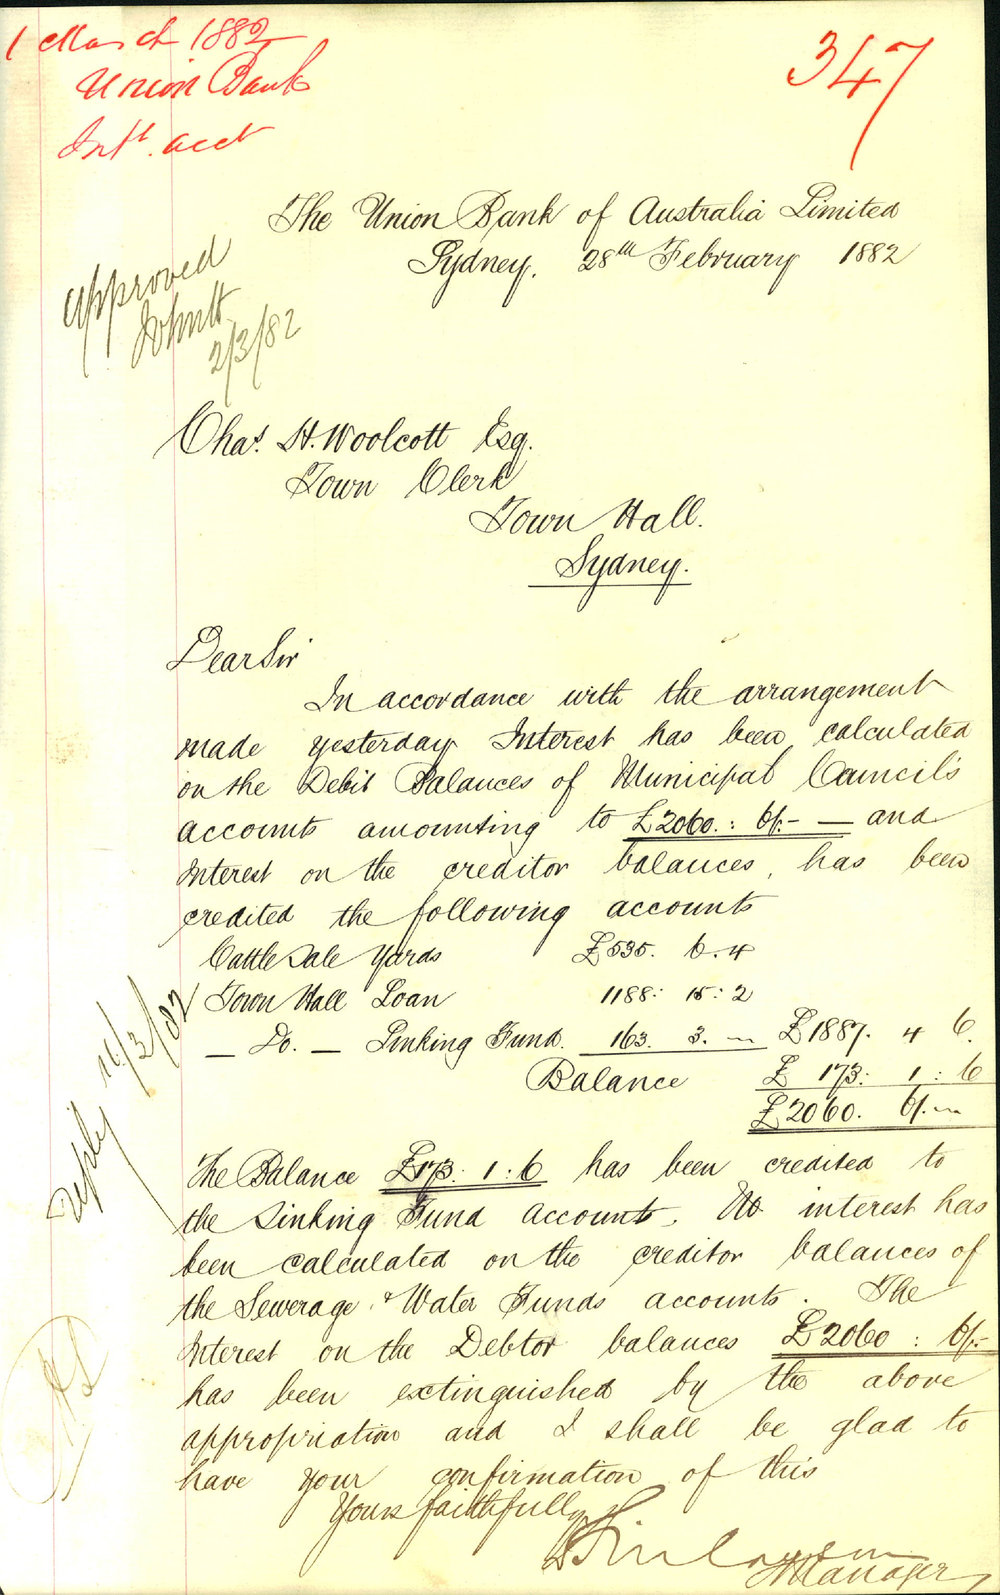 1 March 1882
Union Bank
Int. acct
347
The Union Bank of Australia Limited
Sydney. 28th February 1882
Approved
2/3/82
Chas. H. Woolcott Esq.
Town Clerk
Town Hall.
Sydney.
Dear Sir
In accordance with the arrangement
made yesterday Interest has been calculated
on the Debit Balances of Municipal Council's
accounts amounting to £2060.: 6/- — and
interest on the creditor balances, has been
credited the following accounts
Cattle Sale Yards £535. 6. 4
Town Hall Loan 1188: 15: 2
— Do. — Sinking Fund. 163. 3. — £1887. 4 6.
Balance £ 173: 1: 6
£2060. 6/. —
The Balance £173. 1: 6 has been credited to
the Sinking Fund accounts. No interest has
been calculated on the creditor balances of
the Sewerage & Water Funds accounts. The
interest on the Debtor balances £2060: 6/-
has been extinguished by the above
appropriation and I shall be glad to
have your confirmation of this
Yours faithfully
Manager
Reply 16/3/82